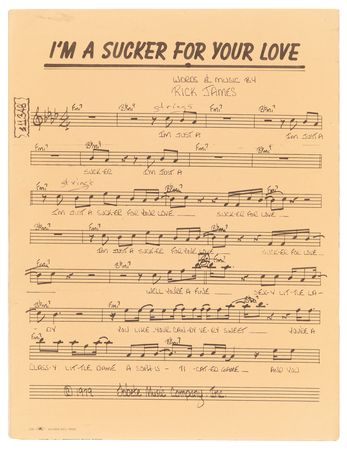 I'M A SUCKER FOR YOUR LOVE
WORDS & MUSIC BY
RICK JAMES
Fm7 Bbm7 strings Fm7 Bbm7
I'M JUST A I'M JUST A
Fm7 Bbm7 Fm7 Bbm7
SUCK-ER I'M JUST A
strings
Fm7 Bbm7 Fm7
I'M JUST A SUCK-ER FOR YOUR LOVE SUCK-ER FOR LOVE
Fm7 Bbm7 Fm7
I'M JUST A SUCK-ER FOR YOUR SUCK-ER FOR LOVE
Fm7
WELL YOU'RE A FINE SEX-Y LIT-TLE LA-
Bbm7 Fm7 Bbm7
- DY YOU LIKE YOUR CAN-DY VE-RY SWEET YOU'RE A
Fm7 Bbm7 Fm7
CLASS-Y LIT-TLE DAME A SOPH-IS-TI-CAT-ED GAME AND YOU
© 1979 Jobete Music Company, Inc.